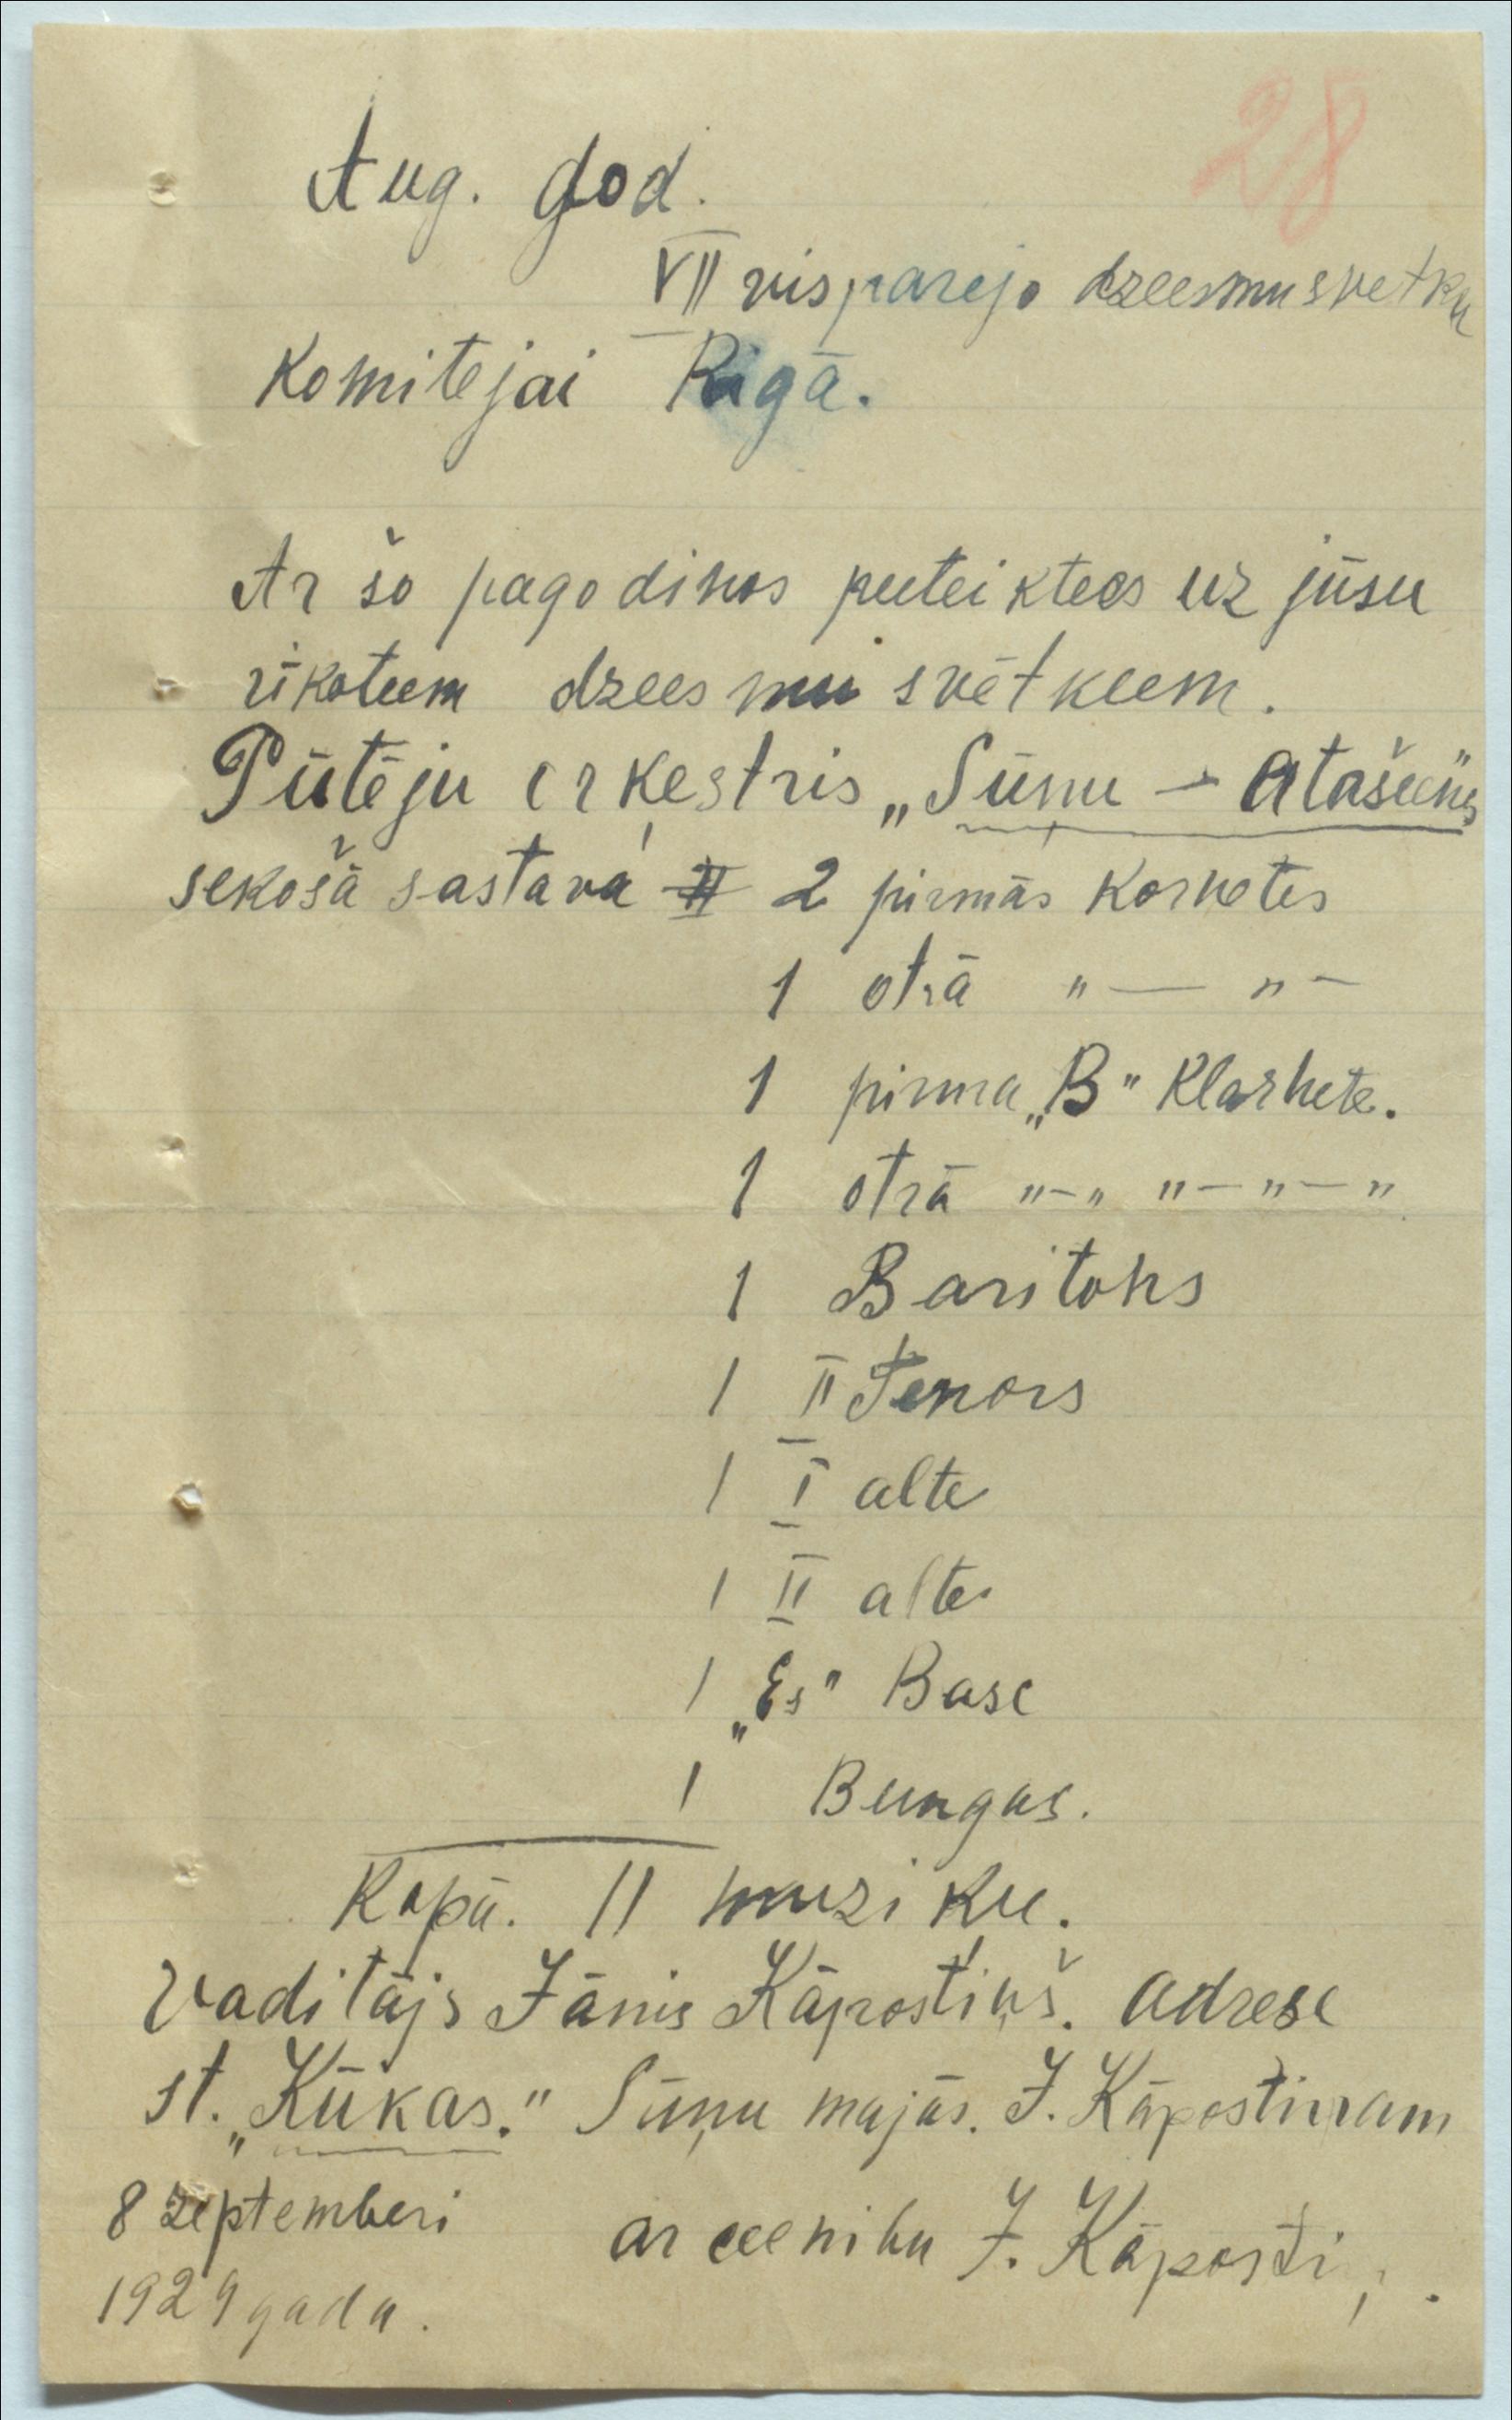 28
Aug. god.
VII visparejo dzeesmu svetku
Komitejai Rigā.
Ar šo pagodinos peeteiktees uz jūsu
rīkoteem dzeesmu svētkeem.
Pūtēju orķestris „Sūnu - Atašeene"
sekošā sastavā 2 pirmās Kornetes
1 otrā " — " -
1 pirma „B" Klarnete.
1 otrā "-" "-"-"
1 Baritons
1 II Tenors
1 I alte
1 II alte
1 „Es" Base
1 Bungas.
Kopā. 11 muziku.
Vaditājs Jānis Kāpostiņš. Adrese
st. „Kūkas." Sūņu majās. J. Kāpostinam
8 septemberi ar ceenibu J. Kāpostiņ.
1929 gada.